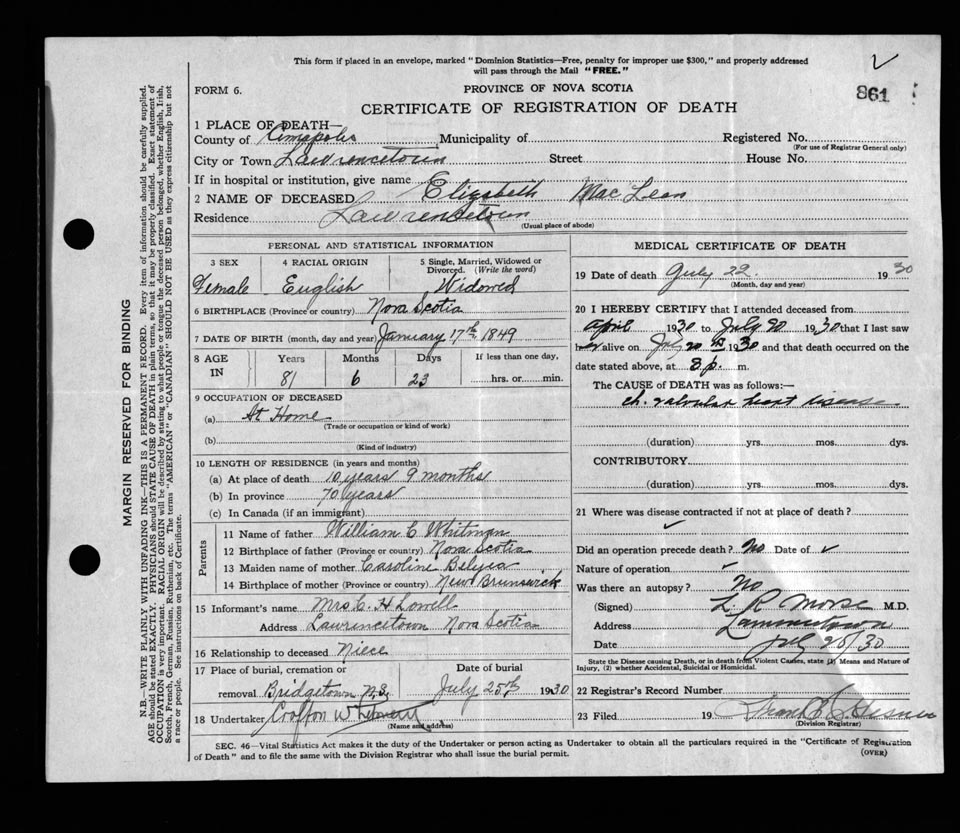 This form if placed in an envelope, marked "Dominion Statistics—Free, penalty for improper use $300," and properly addressed
will pass through the Mail "FREE."
861
FORM 6.
PROVINCE OF NOVA SCOTIA
CERTIFICATE OF REGISTRATION OF DEATH
1 PLACE OF DEATH—
County of Annapolis Municipality of Registered No.
(For use of Registrar General only)
City or Town Lawrencetown Street House No.
If in hospital or institution, give name
2 NAME OF DECEASED Elizabeth MacLean
Residence Lawrencetown
(Usual place of abode)
PERSONAL AND STATISTICAL INFORMATION
3 SEX 4 RACIAL ORIGIN 5 Single, Married, Widowed or
Divorced. (Write the word)
Female English Widowed
6 BIRTHPLACE (Province or country) Nova Scotia
7 DATE OF BIRTH (month, day and year) January 17th 1849
8 AGE IN Years Months Days If less than one day,
81 6 23 hrs. or min.
9 OCCUPATION OF DECEASED
(a) At Home
(Trade or occupation or kind of work)
(b)
(Kind of industry)
10 LENGTH OF RESIDENCE (in years and months)
(a) At place of death 10 years 9 months
(b) In province 70 years
(c) In Canada (if an immigrant)
Parents
11 Name of father William C Whitman
12 Birthplace of father (Province or country) Nova Scotia
13 Maiden name of mother Caroline Belyea
14 Birthplace of mother (Province or country) New Brunswick
15 Informant's name Mrs C. H Lowell
Address Lawrincetown Nova Scotia
16 Relationship to deceased Niece
17 Place of burial, cremation or Date of burial
removal Bridgetown N.S. July 25th 1930
18 Undertaker
(Name and address)
MEDICAL CERTIFICATE OF DEATH
19 Date of death July 22. 1930
(Month, day and year)
20 I HEREBY CERTIFY that I attended deceased from
April 1930 to July 20 1930 that I last saw
her alive on July 20 th 1930 and that death occurred on the
date stated above, at 3 p. m.
The CAUSE OF DEATH was as follows:—
ch. valvular heart disease
(duration) yrs. mos. dys.
CONTRIBUTORY.
(duration) yrs. mos. dys.
21 Where was disease contracted if not at place of death?
Did an operation precede death? No Date of
Nature of operation
Was there an autopsy? No
(Signed) L. R Morse M.D.
Address Lawrencetown
Date July 25/30
State the Disease causing Death, or in death from Violent Causes, state (1) Means and Nature of
Injury, (2) whether Accidental, Suicidal or Homicidal.
22 Registrar's Record Number
23 Filed 19
(Division Registrar)
SEC. 46—Vital Statistics Act makes it the duty of the Undertaker or person acting as Undertaker to obtain all the particulars required in the "Certificate of Registration
of Death" and to file the same with the Division Registrar who shall issue the burial permit. (OVER)
MARGIN RESERVED FOR BINDING
N.B.—WRITE PLAINLY WITH UNFADING INK—THIS IS A PERMANENT RECORD. Every item of information should be carefully supplied.
AGE should be stated EXACTLY. PHYSICIANS should STATE CAUSE OF DEATH in plain terms, so that it may be properly classified. Exact statement of
OCCUPATION is very important. RACIAL ORIGIN will be described by stating to what people or tongue the deceased person belonged, whether English, Irish,
Scotch, French, German, Russian, Ruthenian, etc. The terms "AMERICAN" or "CANADIAN" SHOULD NOT BE USED as they express citizenship but not
a race or people. See instructions on back of Certificate.